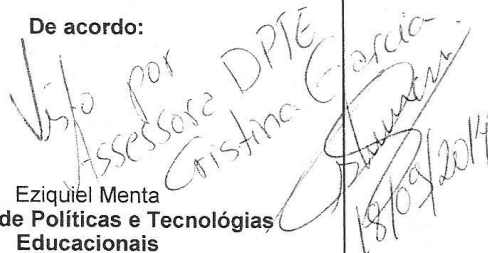 De acordo:
Visto por
Assessora DPTE
Cristina Garcia
18/09/2014
Eziquiel Menta
de Políticas e Tecnológias
Educacionais